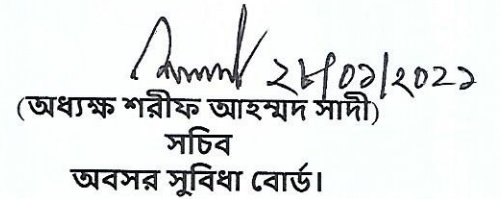 ২৮/০১/২০২১
(অধ্যক্ষ শরীফ আহম্মদ সাদী)
সচিব
অবসর সুবিধা বোর্ড।